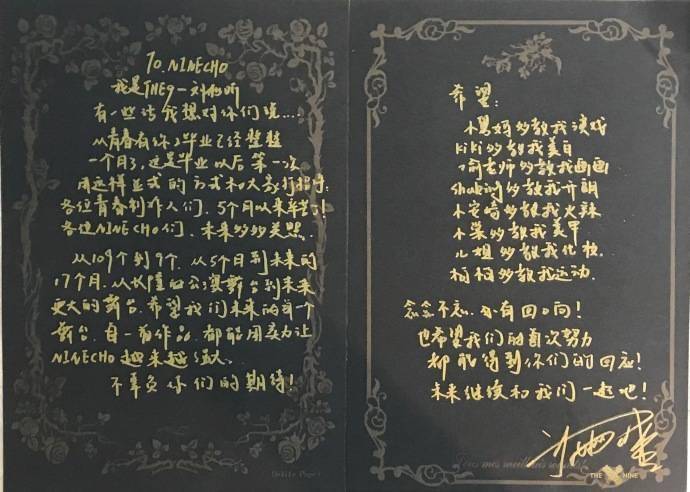 TO. NINECHO
我是THE9-刘雨昕
有一些话我想对你们说...
从青春有你2毕业已经整整
一个月了,这是毕业以后第一次
用这样正式的方式和大家打招呼.
各位青春制作人们.5个月以来辛苦了
各位NINECHO们.未来多多关照.
从109个到9个.从5个月到未来的
17个月.从长隆的公演舞台到未来
更大的舞台.希望我们未来的每一个
舞台.每一首作品.都能用实力让
NINECHO越来越强大.
不辜负你们的期待!
希望:
多教我演戏
kiki多教我美白
喻老师多教我画画
Shaking多教我开朗
小安崎多教我火辣
小棠多教我美甲
儿姐多教我化妆.
多教我运动.
念念不忘.必有回响!
也希望我们的每次努力
都能得到你们的回应!
未来继续和我们一起吧!
THE NINE